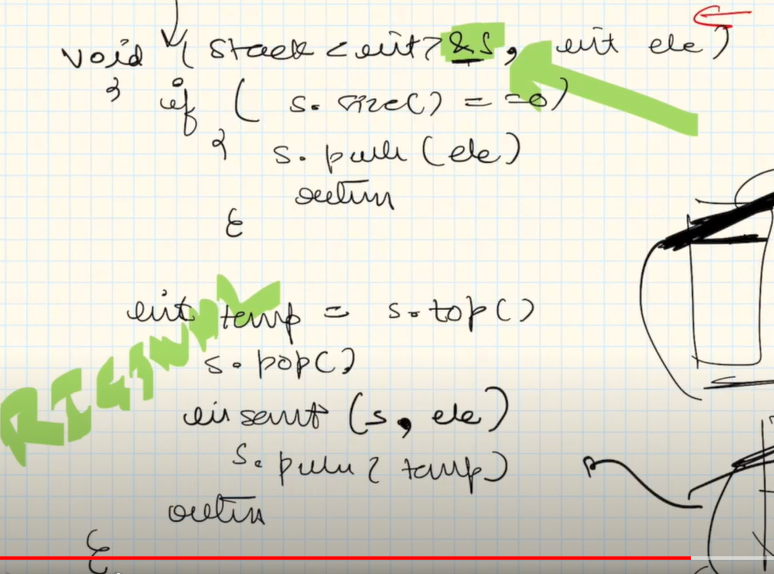 void ( stack <int> &s, int ele )
{ if ( s.size() == 0)
{ s.push (ele)
return
}
int temp = s.top()
s.pop()
insert (s, ele)
s.push ( temp)
return
}